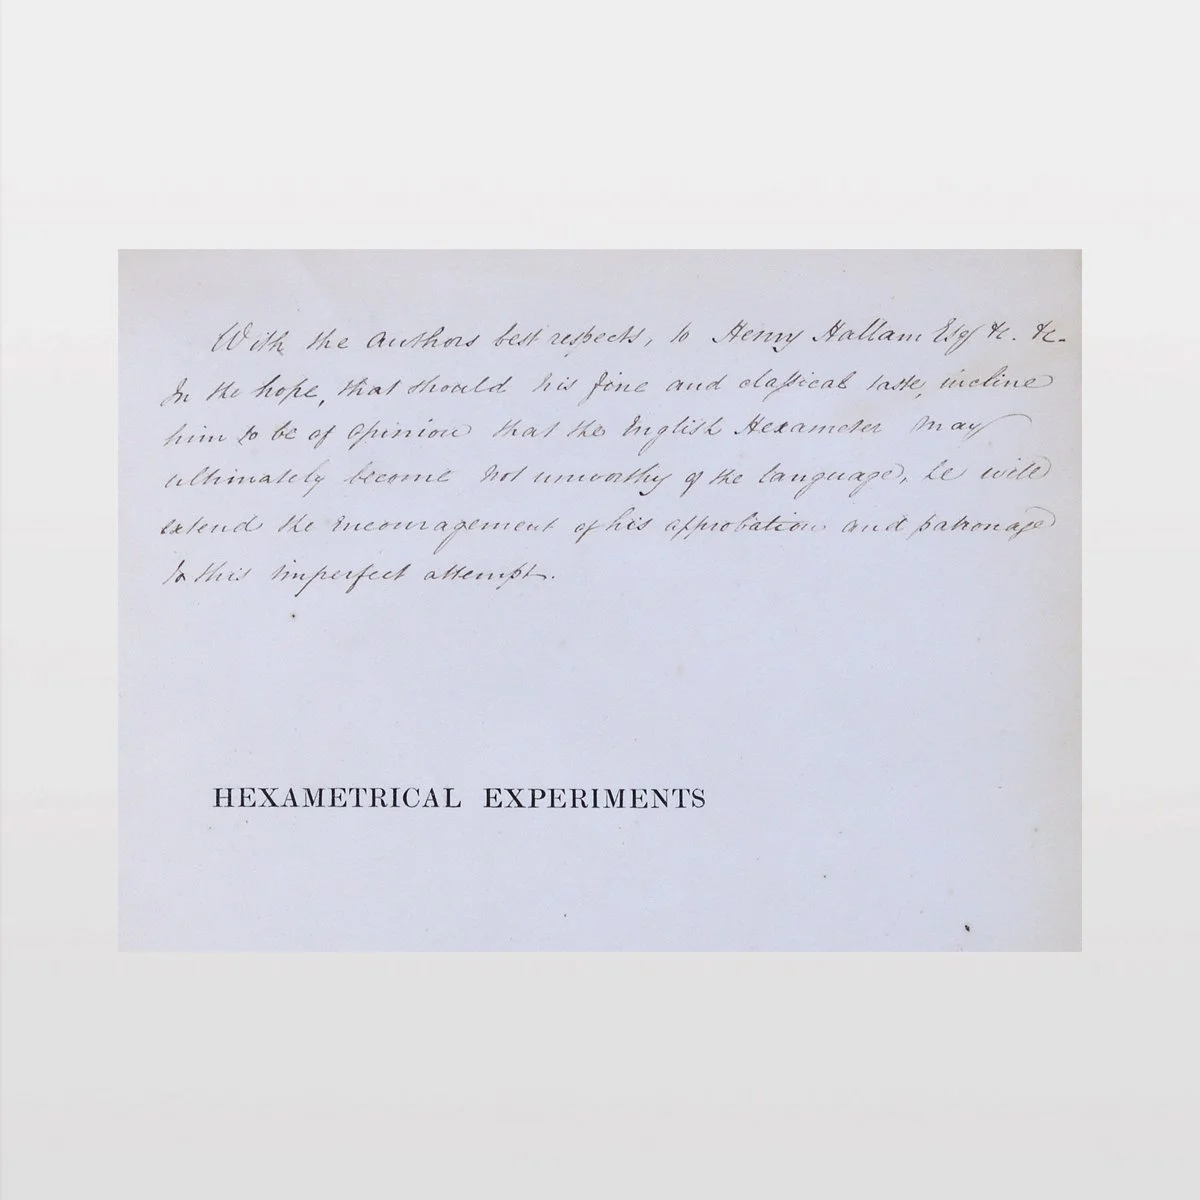 With the Authors best respects, to Henry Hallam Esq &c. &c.
In the hope, that should his fine and classical taste, incline
him to be of opinion that the English Hexameter may
ultimately become not unworthy of the language, he will
extend the encouragement of his approbation and patronage
to this imperfect attempt.
HEXAMETRICAL EXPERIMENTS